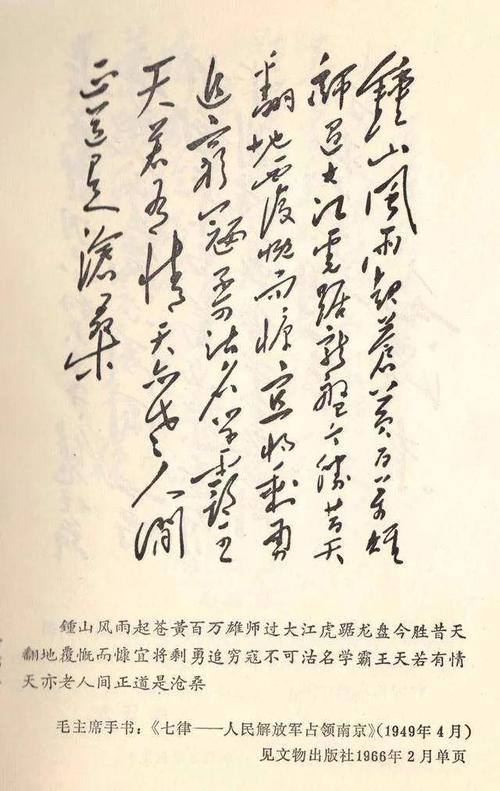 鍾山風雨起蒼黃百萬雄
師過大江虎踞龍盤今勝昔天
翻地覆慨而慷宜將剩勇
追窮寇不可沽名學霸王
天若有情天亦老人間
正道是滄桑
鍾山风雨起苍黄百万雄师过大江虎踞龙盘今胜昔天
翻地覆慨而慷宜将剩勇追穷寇不可沽名学霸王天若有情
天亦老人间正道是沧桑
毛主席手书：《七律——人民解放军占领南京》（1949年4月）
见文物出版社1966年2月单页